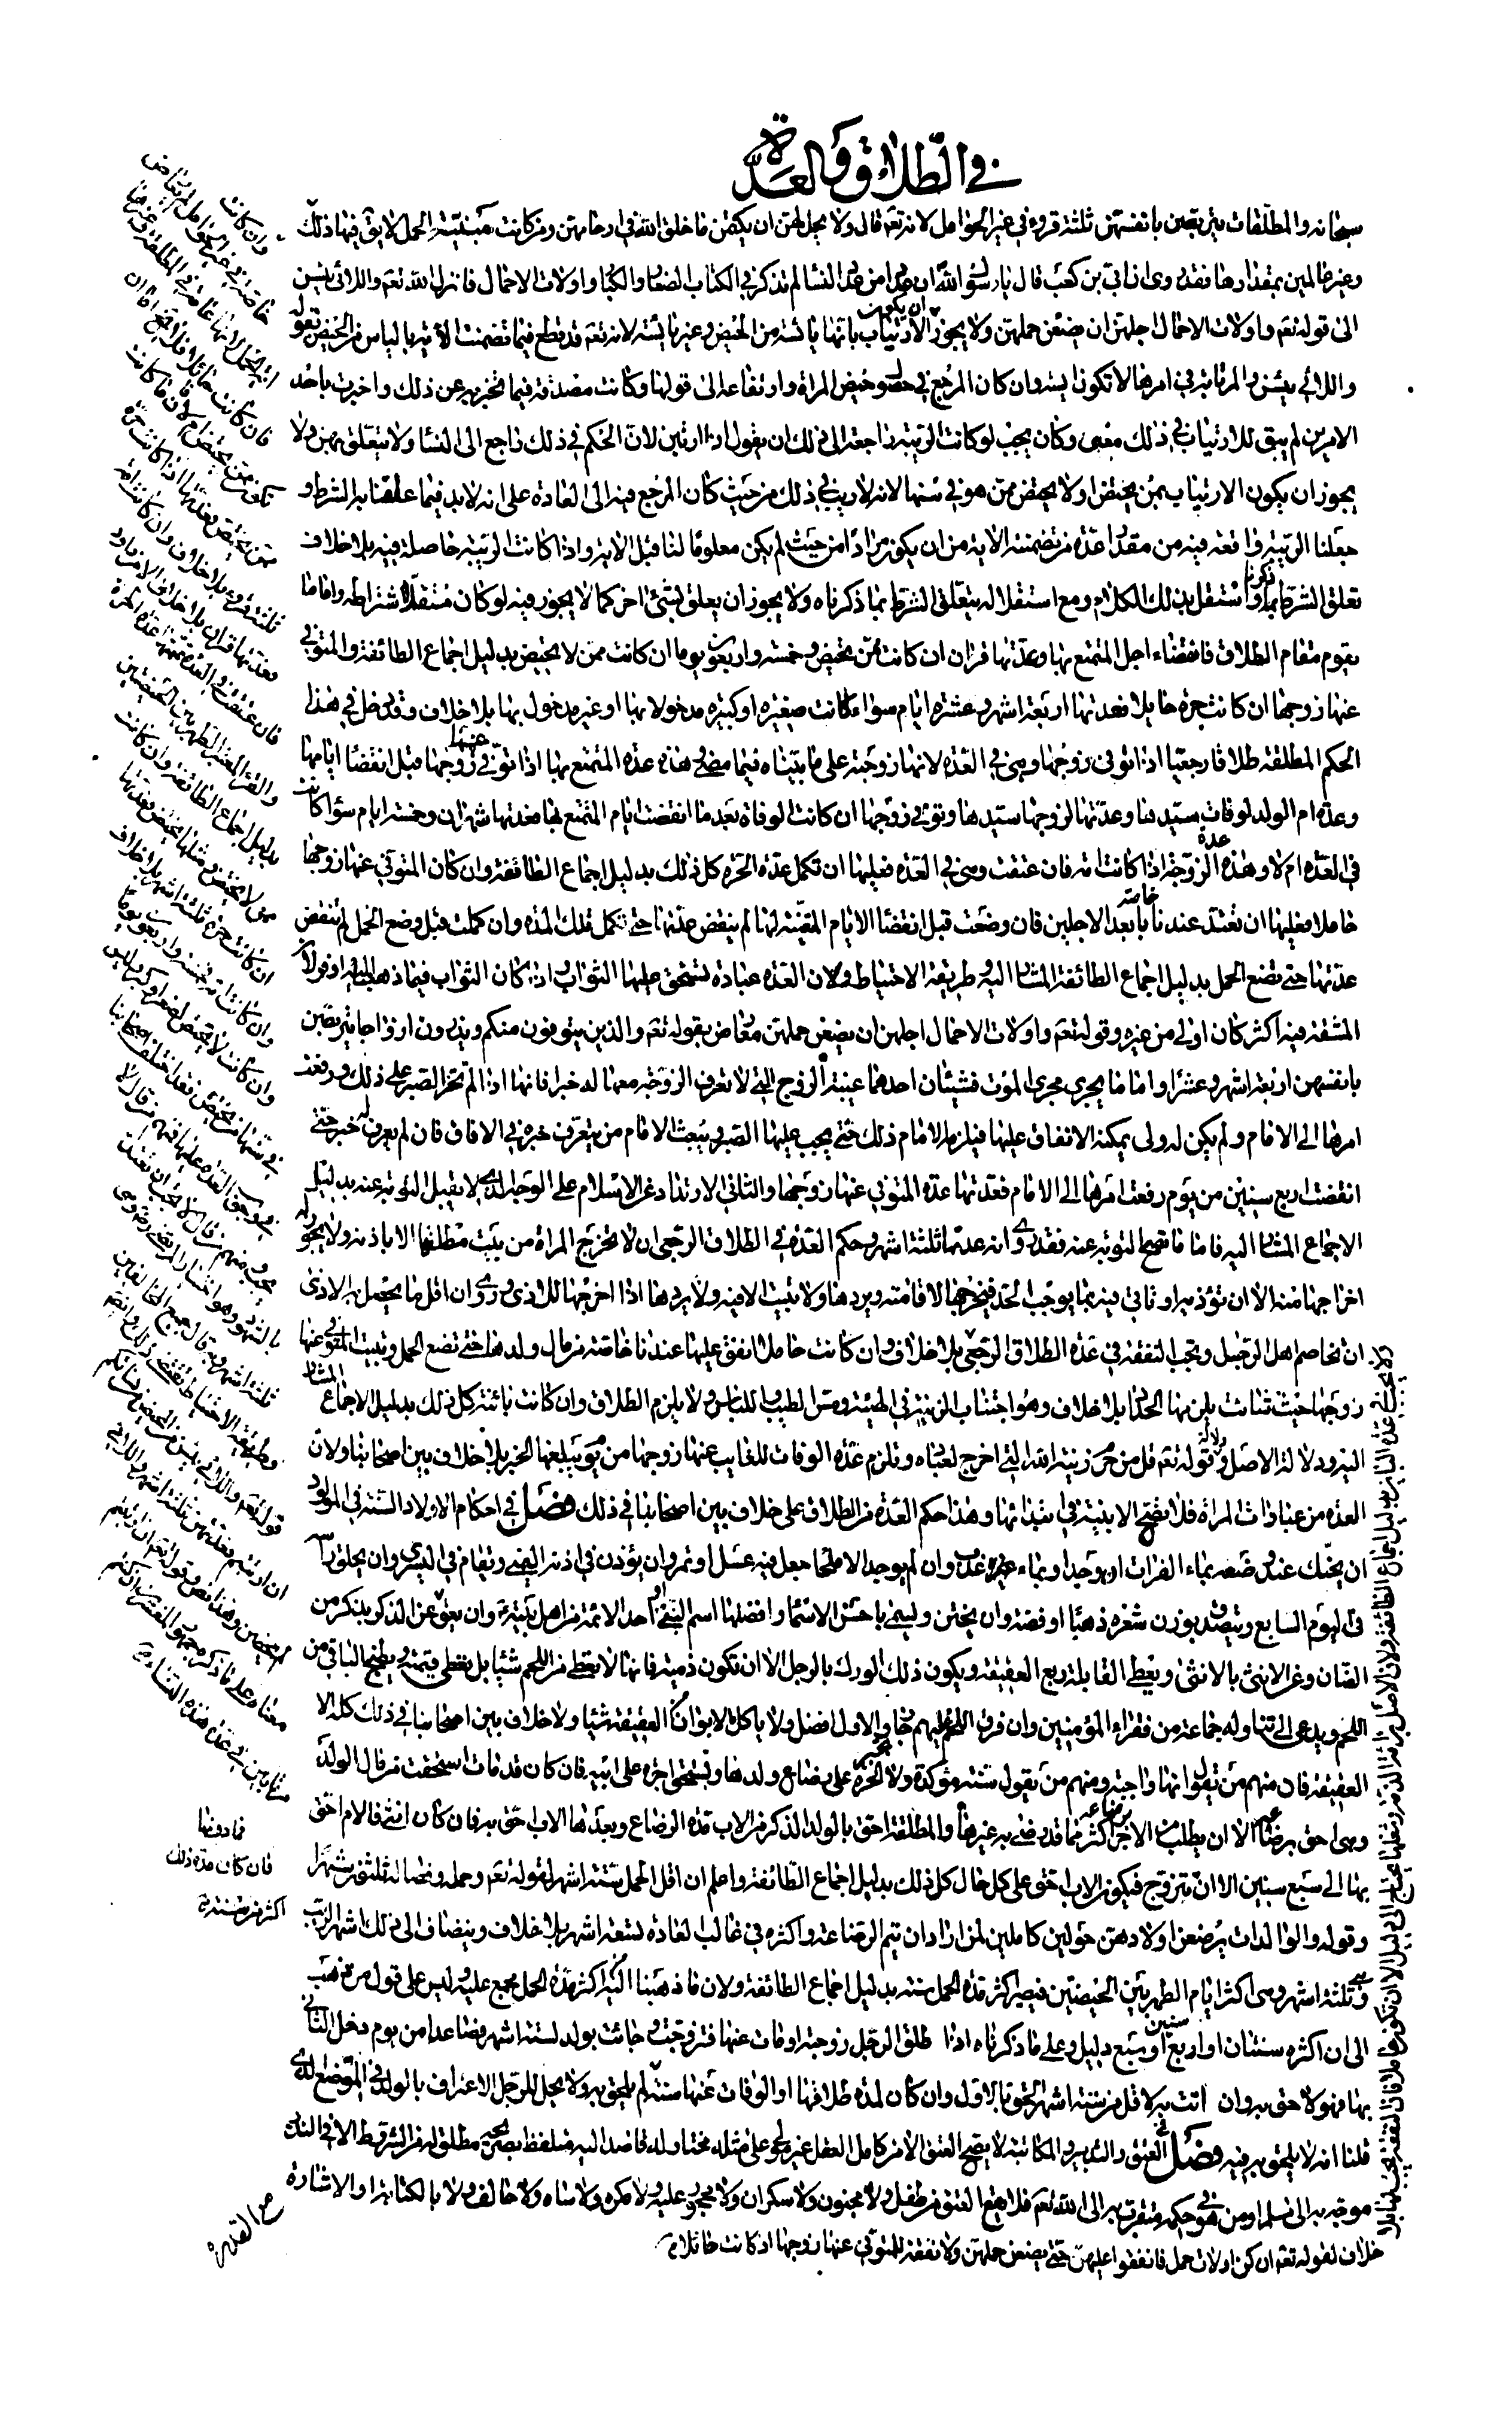 في الطلاق والعدة
سبحانه والمطلقات يتربصن بانفسهن ثلثة قروء في غير الحوامل لانه تعم قال ولا يحل لهن ان يكتمن ما خلق الله في ارحامهن ومن كانت مبنية الحمل لا يق فيها ذلك
وغيرها لمين بمقدارها فقد روى ان ابي بن كعب قال يا رسول الله ان عددا من عدد النسا لم تذكر في الكتاب الصغار والكبار واولات الاحمال فانزل الله تعم واللائي يئسن
الى قوله تعم واولات الاحمال اجلهن ان يضعن حملهن ولا يجوز ان يكون الارتياب بانها يائسة من الحيض وغير يائسة لانه تعم قد قطع فيما تضمنت الاية باليأس من الحيض بقوله
واللائي يئسن والمرتابة في امرها لا تكون ايسة وان كان المرجع في حصو حيض المراة وارتفاعه الى قولها وكانت مصدقة فيما تخبر به عن ذلك واخبرت باحد
الامرين لم يبق للارتياب في ذلك معنى وكان يجب لو كانت الريبة راجعة الى ذلك ان يقول ان ارتبن لان الحكم في ذلك راجع الى النسا ولا يتعلق بهن ولا
يجوز ان يكون الارتياب بمن يحيض او لا يحيض ممن هو في سنها لانه لا ريب في ذلك من حيث كان المرجع فيه الى العادة على انه لا بد فيما علقنا به الشرط و
جعلنا الريبة واقعة فيه من مقدار عدة من تضمنته الاية من ان يكون مرادا من حيث لم يكن معلوما لنا قبل الاية واذا كانت الريبة حاصلة فيه بلا خلاف
تعلق الشرط به واستقل بذلك الكلام ومع استقلاله يتعلق الشرط بما ذكرناه ولا يجوز ان يعلق بشئ اخر كما لا يجوز فيه لو كان مستقلا اشتراطه واما ما
يقوم مقام الطلاق فانقضاء اجل المتمتع بها وعدتها قران ان كانت ممن تحيض وخمسة واربعون يوما ان كانت ممن لا تحيض بدليل اجماع الطائفة والمتوفى
عنها زوجها ان كانت حرة حايلا فعدتها اربعة اشهر وعشرة ايام سواء كانت صغيرة او كبيرة مدخولا بها او غير مدخول بها بلا خلاف وقد دخل في هذا
الحكم المطلقة طلاقا رجعيا اذا توفى زوجها وهي في العدة لانها زوجته على ما بيناه فيما مضى وهذه عدة المتمتع بها اذا توفى عنها زوجها قبل انقضا ايامها
وعدة ام الولد لوفات سيدها وعدتها لو زوجها سيدها وتوفى زوجها ان كانت الوفاة بعد ما انقضت ايام المتمتع بها فعدتها شهران وخمسة ايام سوا كانت
في العدة ام لا وهذه عدة الزوجة اذا كانت امة فان عتقت وهي في العدة فعليها ان تكمل عدة الحرة كل ذلك بدليل اجماع الطائفة وان كان المتوفى عنها زوجها
حاملا فعليها ان تعتد عندنا خاصة بابعد الاجلين فان وضعت قبل انقضا الايام المعينة لها لم ينقض عدتها حتى تكمل تلك المدة وان كملت قبل وضع الحمل لم تنقض
عدتها حتى تضع الحمل بدليل اجماع الطائفة المشار اليه وطريقة الاحتياط ولان العدة عبادة تستحق عليها الثواب واذا كان الثواب فيما ذهبنا اليه اوفر لان
المشقة فيه اكثر كان اولى من غيره وقوله تعم واولات الاحمال اجلهن ان يضعن حملهن معارض بقوله تعم والذين يتوفون منكم ويذرون ازواجا يتربصن
بانفسهن اربعة اشهر وعشرا واما ما يجري مجرى الموت فشيئان احدهما غيبة الزوج التي لا تعرف الزوجة معها له خبرا فانها اذا لم تختر الصبر على ذلك ورفعت
امرها الى الامام ولم يكن له ولى يمكنه الانفاق عليها فيلزم الامام ذلك حتى يجب عليها الصبر ويبعث الامام من يتعرف خبره في الافاق فان لم يعرف له خبر حتى
انقضت اربع سنين من يوم رفعت امرها الى الامام فعدتها عدة المتوفى عنها زوجها والثاني الارتداد عن الاسلام على الوجه الذي لا يقبل التوبة عنه بدليل
الاجماع المشار اليه فاما ما تصح التوبة عنه فقد روى انه عدتها ثلثة اشهر وحكم العدة في الطلاق الرجعي ان لا تخرج المراة من بيت مطلقها الا باذنه ولا يجوز له
اخراجها منه الا ان تؤذيه او تاتي فيه بما يوجب الحد فيخرجها لاقامته ويردها ولا تبيت الا فيه ولا يردها اذا اخرجها للاذى وروى ان اقل ما يحصل به الاذى
ان تخاصم اهل الرجل ويجب النفقة في عدة الطلاق الرجعي بلا خلاف وان كانت حاملا انفق عليها عندنا خاصة من مال ولدها حتى تضع الحمل وتبيت المتوفى عنها
زوجها حيث شائت يلزمها الحداد بلا خلاف وهو اجتناب الزينة في الهيئة ومس الطيب واللباس ولا يلزم الطلاق وان كانت بائنة كل ذلك بدليل الاجماع المشار
اليه ودلالة الاصل ودلالة قوله تعم قل من حرم زينة الله التي اخرج لعباده وتلزم عدة الوفات للغايب عنها زوجها من يوم يبلغها الخبر بلا خلاف بين اصحابنا ولان
العدة من عبادات المراة فلا تصح الا بنية في ابتدائها وهذا حكم العدة من الطلاق على خلاف بين اصحابنا في ذلك فصل في احكام الاولاد السنة في المولود
ان يحنك عند وضعه بماء الفرات ان وجد او بماء غيره عذب وان لم يوجد الا ملحا جعل فيه عسل او تمر وان يؤذن في اذنه اليمنى ويقام في اليسرى وان يحلق راسه
في اليوم السابع ويتصدق بوزن شعره ذهبا او فضة وان يختن ويسمى باحسن الاسماء وافضلها اسم النبي او احد الائمة من اهل بيته وان يعق عن الذكر بذكر من
الضان وعن الانثى بالانثى ويعطى القابلة ربع العقيقة ويكون ذلك الورك بالرجل الا ان تكون ذمية فانها لا يعطى من اللحم شيئا بل يعطى قيمته ويطبخ الباقي من
اللحم ويدعى الى تناوله جماعة من فقراء المؤمنين وان فرق اللحم عليهم جاز والاول افضل ولا ياكل الابوان من العقيقة شيئا ولا خلاف بين اصحابنا في ذلك كله الا
العقيقة فان منهم من يقول انها واجبة ومنهم من يقول سنة مؤكدة ولا تجبر الحرة على رضاع ولدها وتستحق اجره على ابيه فان كان قد مات استحقت من مال الولد
وهى احق برضاعه الا ان يطلب من الاجر اكثر مما قد رضى به غيرها والمطلقة احق بالولد الذكر من الاب مدة الرضاع وبعدها الاب احق به فان كان انثى فالام احق
بها الى سبع سنين الا ان تتزوج فيكون الاب احق على كل حال كل ذلك بدليل اجماع الطائفة واعلم ان اقل الحمل ستة اشهر لقوله تعم وحمله وفصاله ثلثون شهرا
وقوله والوالدات يرضعن اولادهن حولين كاملين لمن اراد ان يتم الرضاعة واكثره في غالب العادة تسعة اشهر بلا خلاف وينضاف الى ذلك اشهر الريب
وهي ثلثة اشهر وهي اكثر ايام الطهر بين الحيضتين فيصير اكثر مدة الحمل سنة بدليل اجماع الطائفة ولان ما ذهبنا اليه اكثر مدة الحمل مجمع عليه وليس على قول من ذهب
الى ان اكثره سنتان او اربع او سبع سنين دليل وعلى ما ذكرناه اذا طلق الرجل زوجته او مات عنها فتزوجت وجائت بولد لستة اشهر فصاعدا من يوم دخل الثاني
بها فهو لاحق به وان اتت به لاقل من ستة اشهر لحق بالاول وان كان لمدة طلاقها او الوفات عنها سنة لم يلحق به ولا يحل للرجل الاعتراف بالولد في الموضع الذي
قلنا انه لا يلحق به فيه فصل في العتق والتدبير والمكاتبة لا يصح العتق الا من كامل العقل غير مولى على مثله مختار له قاصد اليه متلفظ بصريحه مطلق له من الشرط الا في النذر
موجه به الى مسلم او من هو في حكمه متقرب به الى الله تعم فلا يقع العتق من طفل ولا مجنون ولا سكران ولا محجور عليه ولا مكره ولا ساه ولا حالف ولا بالكتابة او الاشارة
خلاف لقوله تعم ان كن اولات حمل فانفقوا عليهن حتى يضعن حملهن ولا نفقة للمتوفى عنها زوجها اذ كانت حائلا
وان كانت
خاصة في غير الحوامل
فان كانت حائلا
ثلثة قروء بلا خلاف وان كانت امة
بدليل اجماع الطائفة وان كانت
ان كانت حرة ثلثة اشهر بلا خلاف
وان كانت امة خمسة واربعون يوما
وان كانت لا تحيض لصغر او كبر وليس
في سنها من تحيض فقد اختلف اصحابنا
في وجوب العدة عليها فمنهم من قال لا
يجب ومنهم من قال يجب ان تعتد
بالشهور وهو اختيار المرتضى
ثلثة اشهر وبه قال جميع المخالفين
وطريقة الاحتياط تقتضى ذلك وايضا
قوله تعم واللائي يئسن من المحيض من نسائكم
ان ارتبتم فعدتهن ثلثة اشهر واللائي
لم يحضن وهذا نص وقوله تعم ان ارتبتم
معناه على ما ذكره جمهور المفسرين ان كنتم
مرتابين في عدة هذه النساء
فما دونها
فان كان مدة ذلك
اكثر من سنة